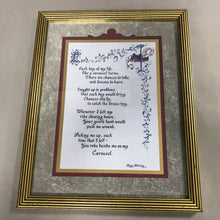 Each day of my life,
like a carousel turns.
There are chances to take,
and lessons to learn.
Caught up in problems,
that each day would bring.
Chances slip by,
to catch the brass ring.
Whenever I felt my
ride slowing down,
Your gentle hand would
push me around.
Picking me up, each
time that I fell ~
You rode beside me on my
Carousel.